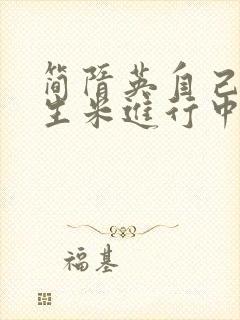 简隋英自己
生米进行中
福基